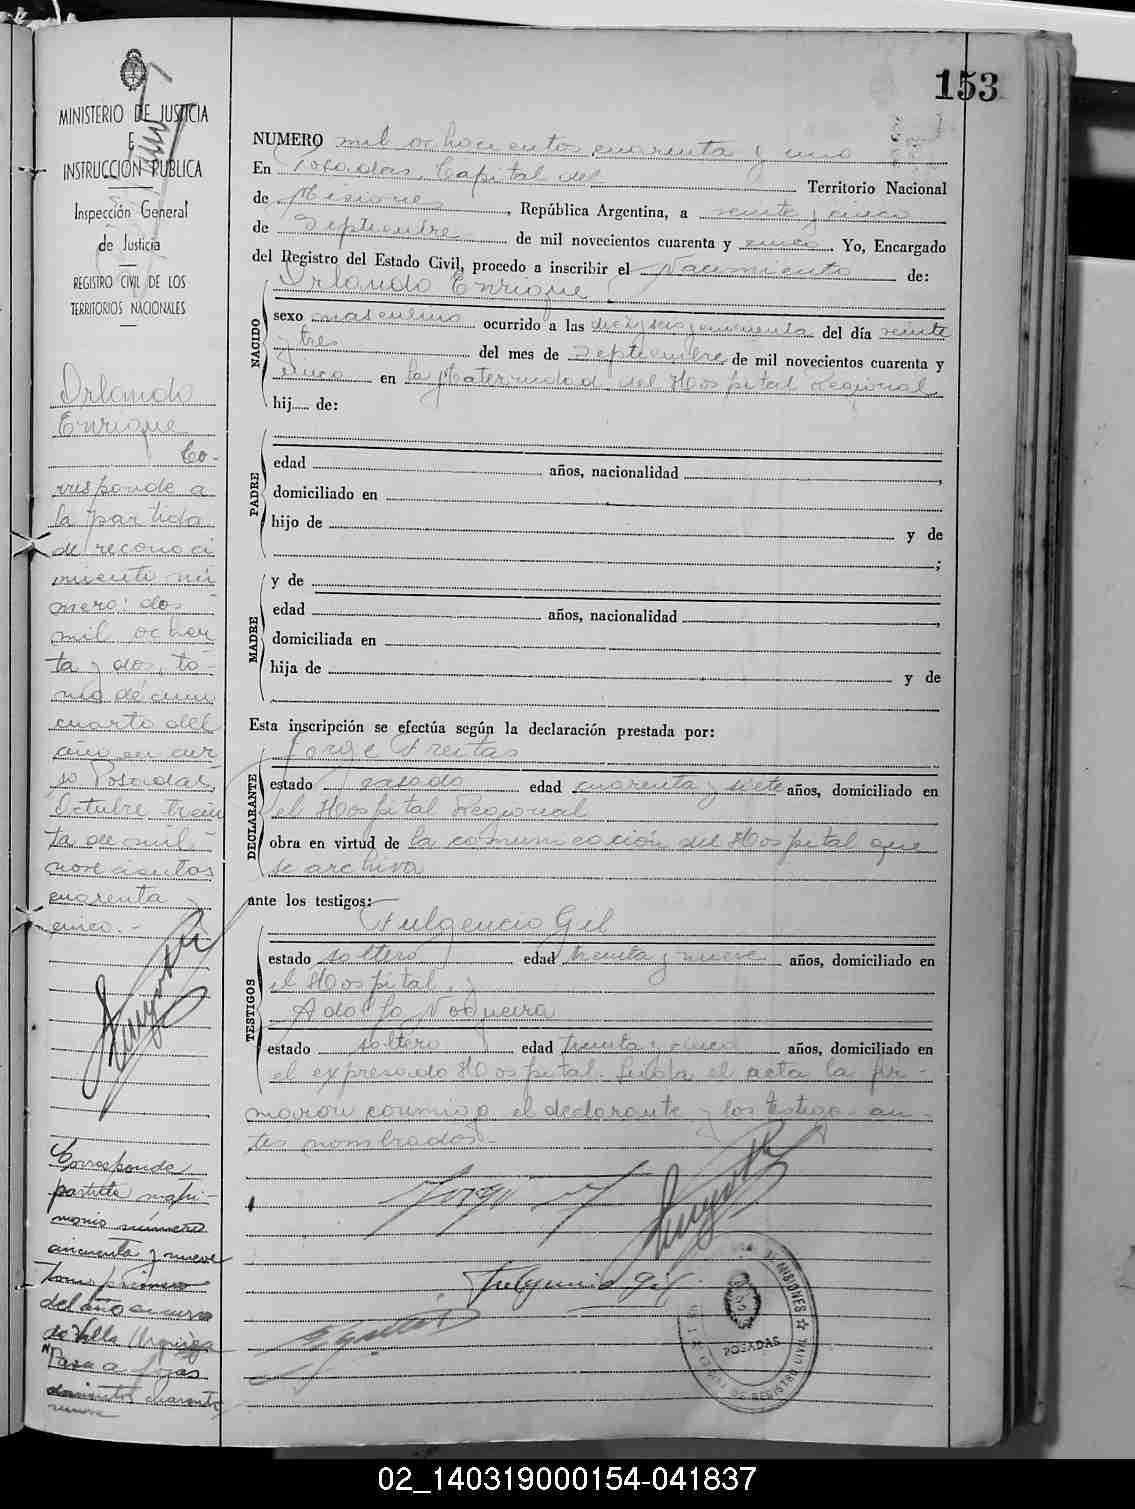 153
MINISTERIO DE JUSTICIA
E
INSTRUCCIÓN PÚBLICA
Inspección General
de Justicia
REGISTRO CIVIL DE LOS
TERRITORIOS NACIONALES
Orlando
Enrique
Co-
rresponde a
la partida
de reconoci
miento nú
mero: dos
mil ochen
ta y dos, to-
mo décimo
cuarto del
año en cur
so Posadas,
Octubre trein
ta de mil
novecientos
cuarenta y
cinco.-
Corresponde
partida matri-
monio número
cincuenta y nueve
tomo primero
del año en curso
de Villa Urquiza
"Pasa a fojas
doscientos cuarenta
nueve
NUMERO mil ochocientos cuarenta y uno
En Posadas, Capital del Territorio Nacional
de Misiones, República Argentina, a veinte y cinco
de Septiembre de mil novecientos cuarenta y cinco. Yo, Encargado
del Registro del Estado Civil, procedo a inscribir el Nacimiento de:
Orlando Enrique
NACIDO
sexo masculino ocurrido a las diez y seis y cincuenta del día veinte
y tres del mes de septiembre de mil novecientos cuarenta y
cinco en la Maternidad del Hospital Regional
hij..... de:
PADRE
edad años, nacionalidad
domiciliado en
hijo de y de
;
MADRE
y de
edad años, nacionalidad
domiciliada en
hija de y de
Esta inscripción se efectúa según la declaración prestada por:
Jorge Freitas
DECLARANTE
estado casado edad cuarenta y siete años, domiciliado en
el Hospital Regional
obra en virtud de la comunicación del Hospital que
se archiva
ante los testigos:
Fulgencio Gil
TESTIGOS
estado soltero edad treinta y nueve años, domiciliado en
el Hospital, y
Adolfo Nogueira
estado soltero edad treinta y cinco años, domiciliado en
el expresado Hospital. Leída el acta la fir-
maron conmigo el declarante y los testigos an-
tes nombrados.-
Fulgencio Gil
MISIONES
POSADAS
02_140319000154-041837